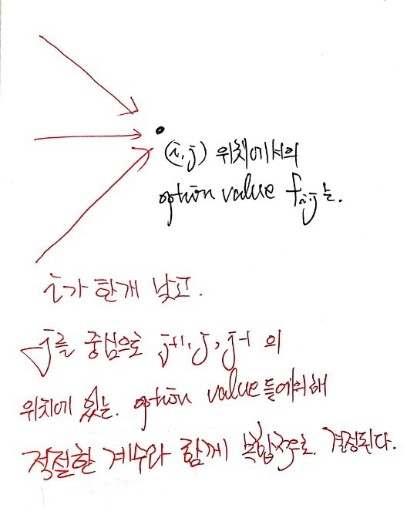 (i,j) 위치에서의
option value f i,j 는.
i가 한개 낮고.
j를 중심으로 j+1, j, j-1 의
위치에 있는. option value들에 의해
적절한 계수와 함께 복합적으로 결정된다.